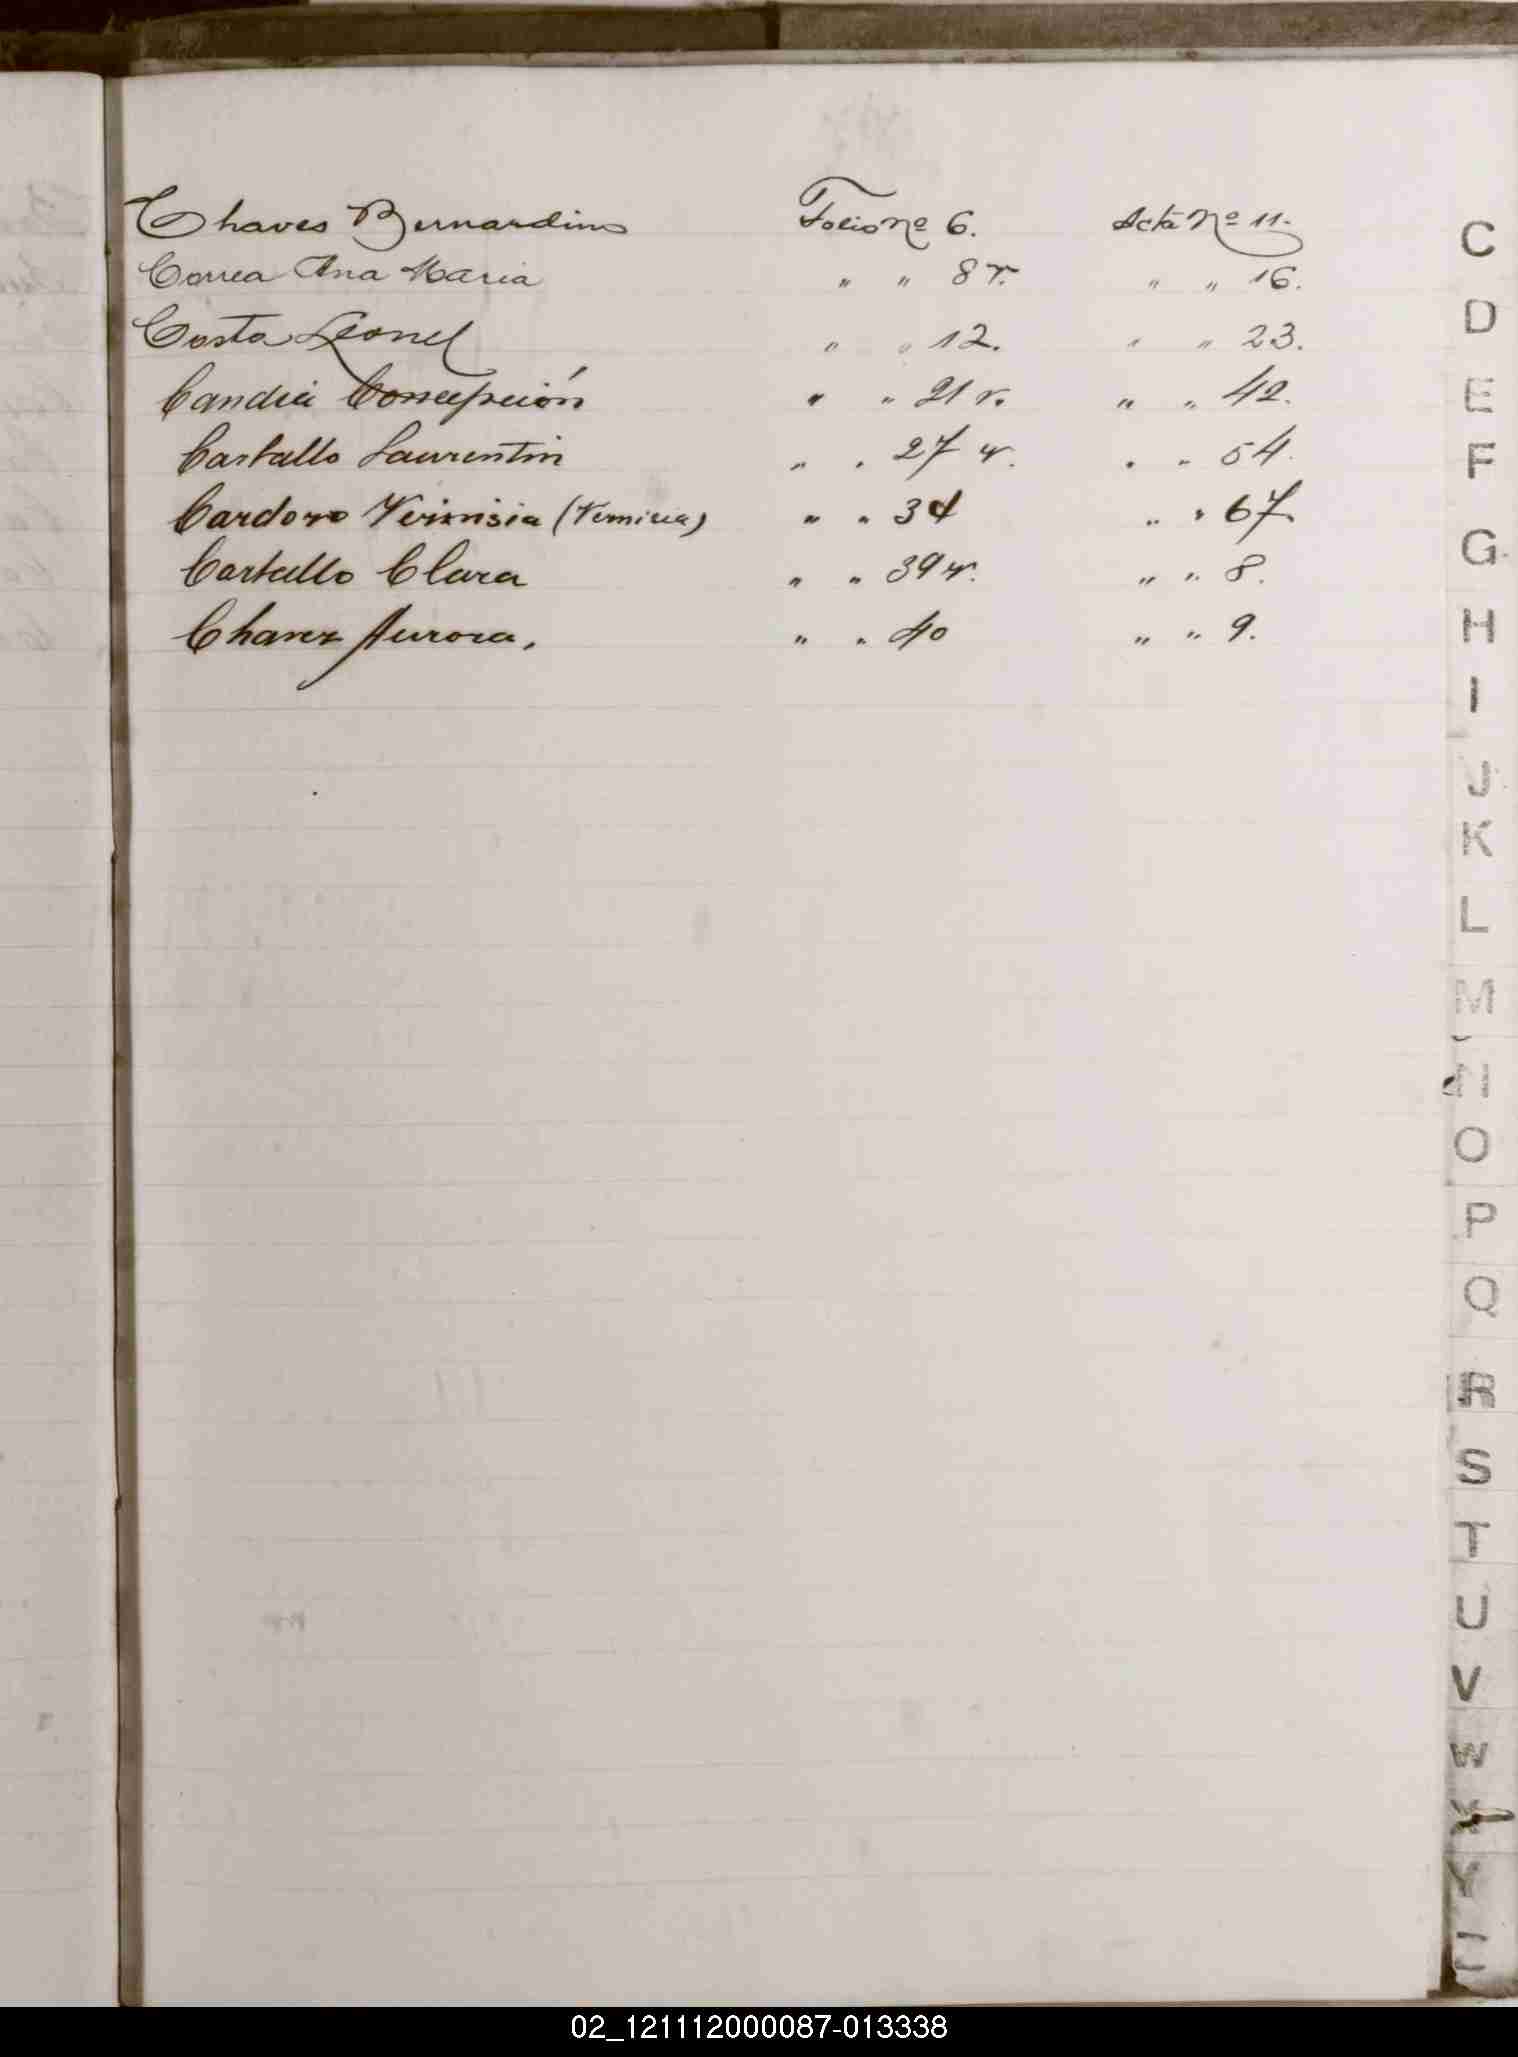 Chaves Bernardino Folio Nº 6. Acta Nº 11.
Correa Ana Maria " " 8 v. " " 16.
Costa Leonel " " 12. " " 23.
Candia Concepción " " 21 v. " " 42.
Castallo Laurentin " " 27 v. " " 54.
Cardozo Verinisia (Vernicia) " " 34 " " 67.
Castello Clara " " 39 v. " " 8.
Chavez Aurora. " " 40 " " 9.
C
D
E
F
G
H
I
J
K
L
M
N
O
P
Q
R
S
T
U
V
W
X
Y
02_121112000087-013338